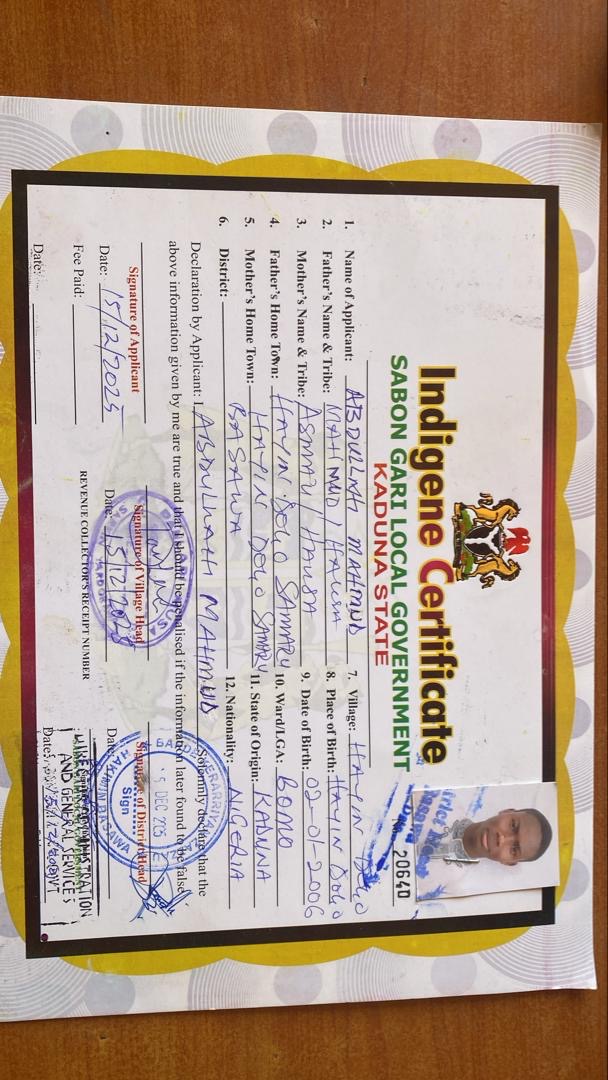 Indigene Certificate
SABON GARI LOCAL GOVERNMENT
KADUNA STATE
20640
1. Name of Applicant: ABDULLAH MAHMUD
2. Father's Name & Tribe: MAHMUD / HAUSA
3. Mother's Name & Tribe: ASMAU / HAUSA
4. Father's Home Town: HAYIN DOGO SAMARU
5. Mother's Home Town: HAYIN DOGO SAMARU
6. District: BASAWA
7. Village: HAYIN DOGO
8. Place of Birth: HAYIN DOGO
9. Date of Birth: 02-01-2006
10. Ward/LGA: BOMO
11. State of Origin: KADUNA
12. Nationality: NIGERIA
Declaration by Applicant: I ABDULLAH MAHMUD solemnly declare that the
above information given by me are true and that I should be penalised if the information later found to be false.
Signature of Applicant
Date: 15/12/2025
Signature of Village Head
Date: 15/12/2025
Signature of District Head
HAKIMIN BASAWA
Sign
15 DEC 2025
Date
Fee Paid:
REVENUE COLLECTOR'S RECEIPT NUMBER
AND GENERAL SERVICES
Date:
Date: